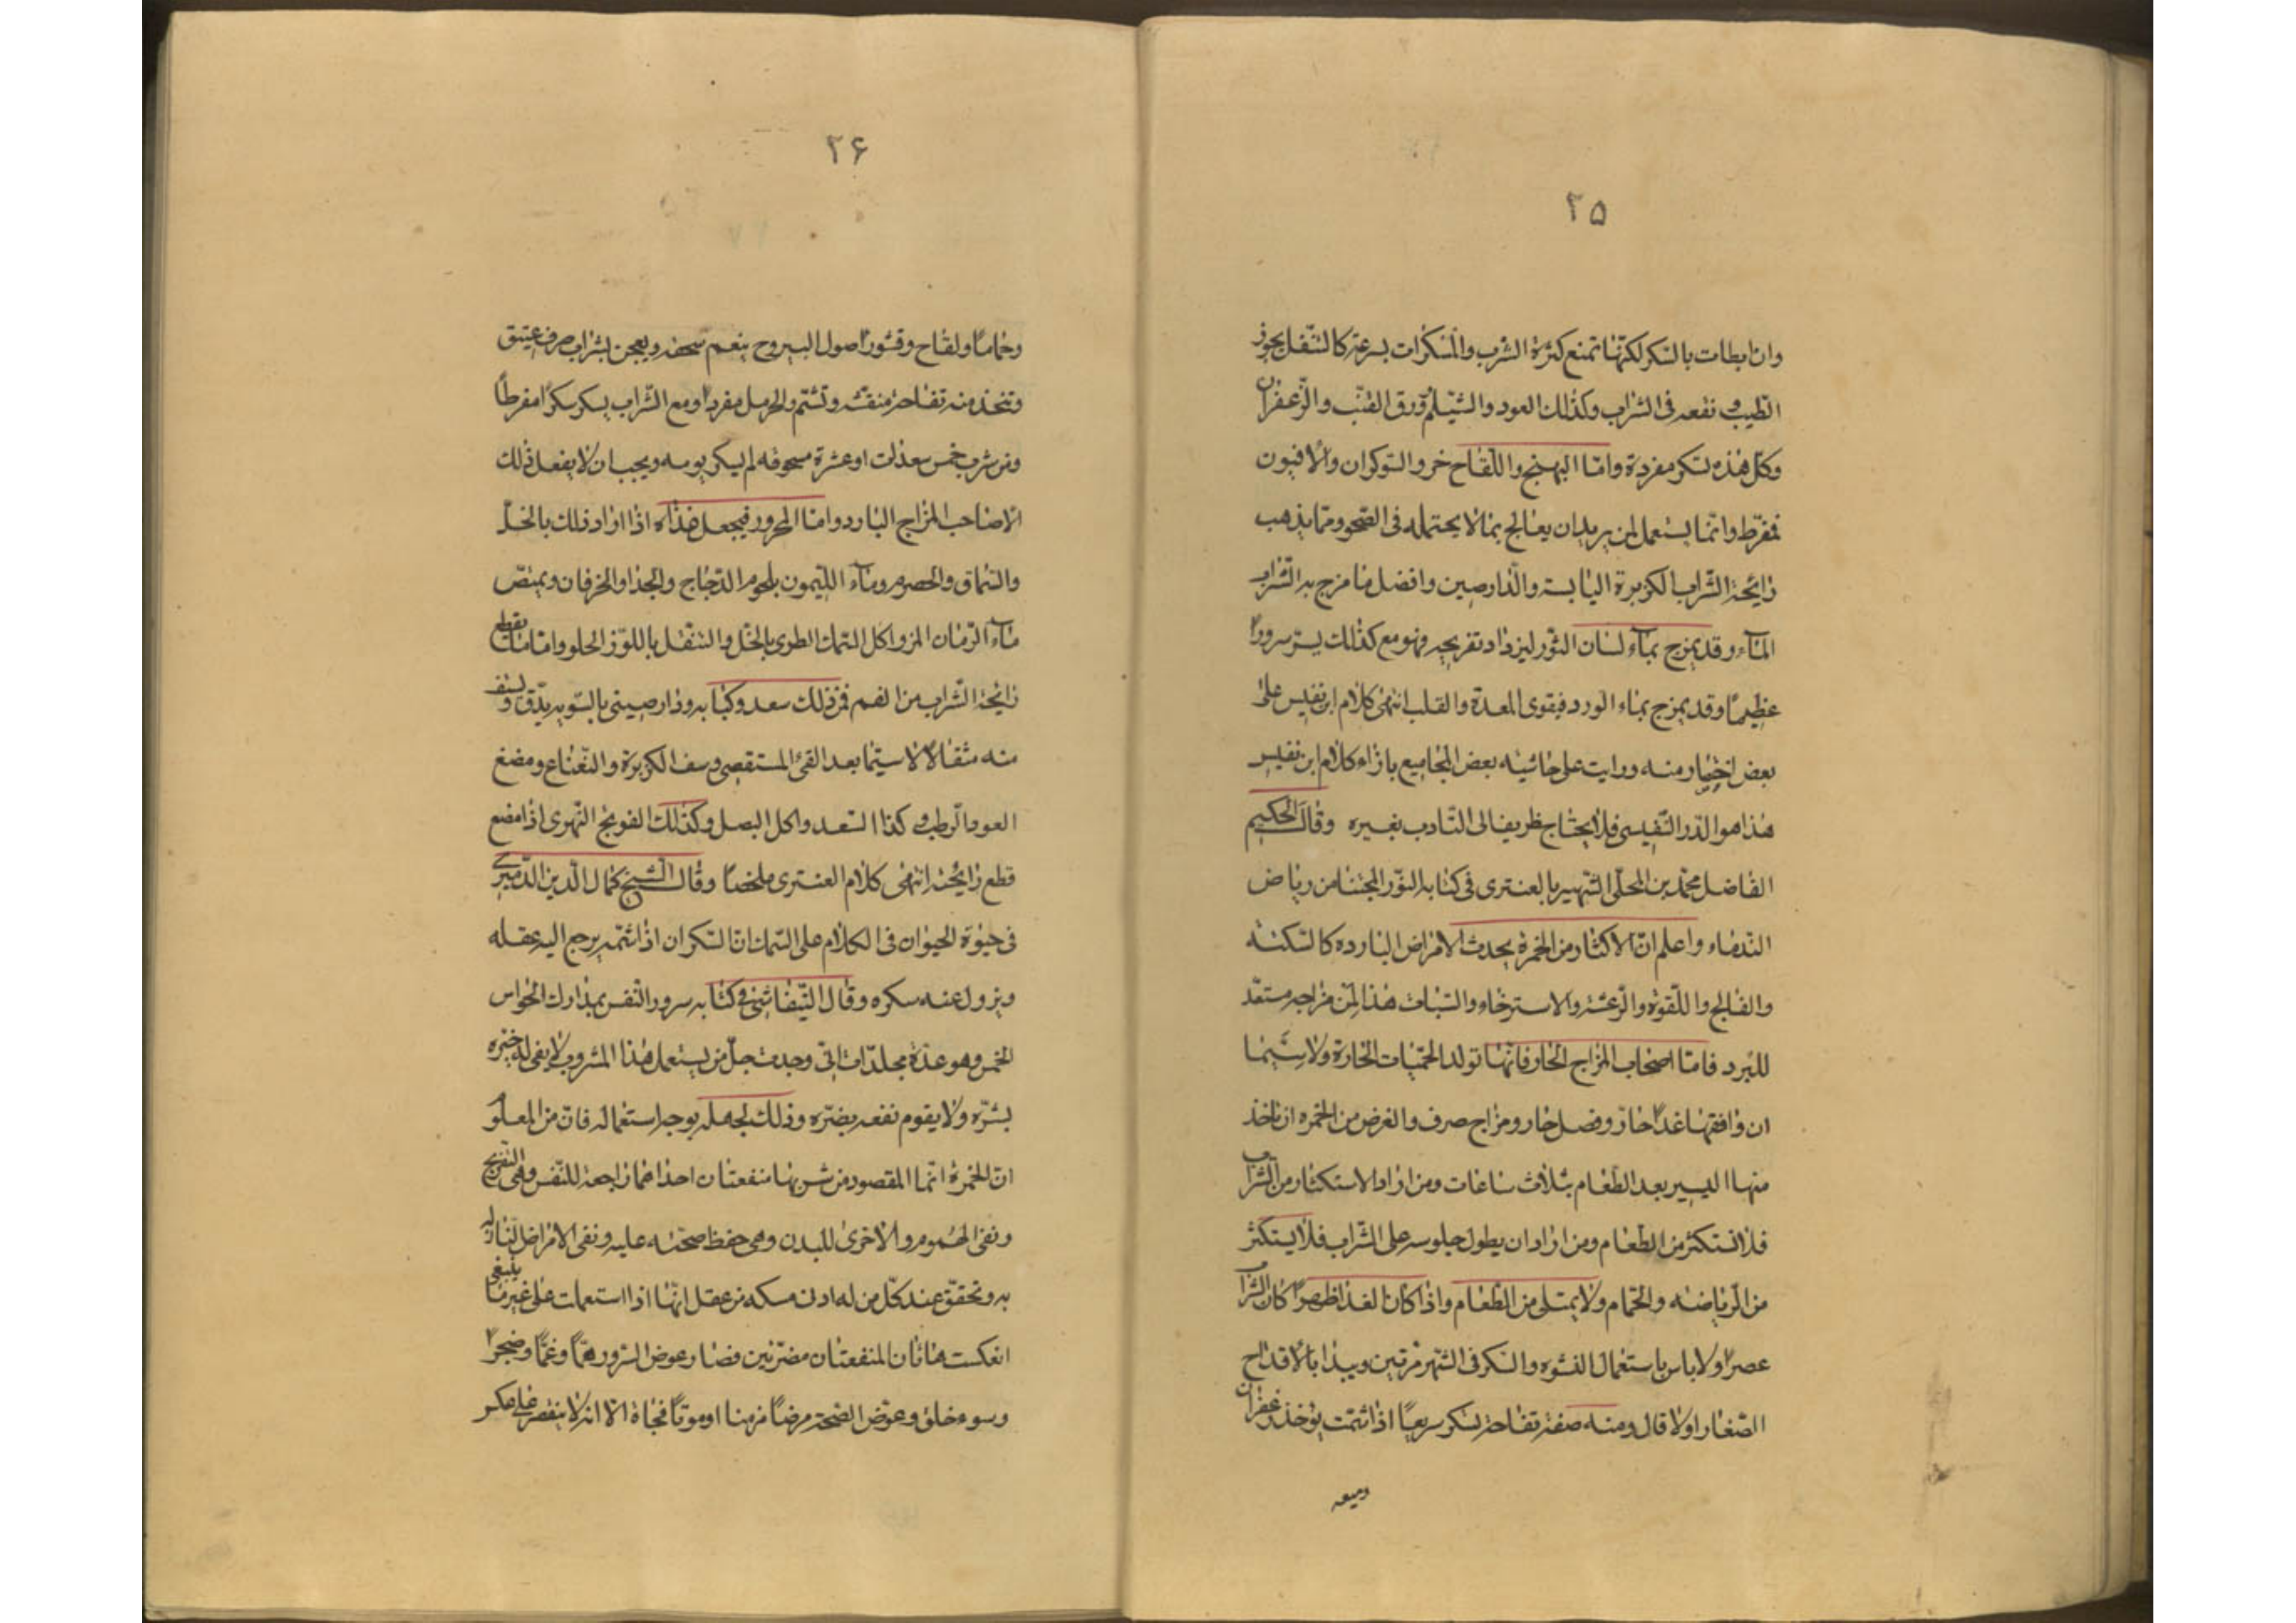 ۲۵
وان ابطات بالسكر لكنها تمنع كثرة الشرب والمسكرات بسرعة كالتنقل بجوز
الطيب نقعه فى الشراب وكذلك العود والشيلم وورق القنب والزعفران
وكل هذه تسكر مفردة واما البهنج واللقاح خر والشوكران والافيون
فمفرط وانما يستعمل لمن يريد ان يعالج بما لا يحتمله فى الصحو ومما يذهب
رايحة الشراب الكزبرة اليابسة والدارصين وافضل ما مزج به الشراب
المآء وقد يمزج بمآء لسان الثور ليزداد تفريحه وهو مع كذلك يسر سرورا
عظيما وقد يمزج بماء الورد فيقوى المعدة والقلب انتهى كلام ابن نفيس على
بعض اختصار منه ورايت على حاشيه بعض المجاميع بازاء كلام ابن نفيس
هذا هو الدر النفيسى فلا يحتاج ظريف الى التادب بغيره وقال الحكيم
الفاضل محمد بن المحلى الشهير بالعنترى فى كتابه النور المجتنا من رياض
الندماء واعلم ان الاكثار من الخمرة يحدث الامراض البارده كالسكتة
والفالج واللقوة والرعشة والاسترخاء والسبات هذا لمن مزاجه مستعد
للبرد فاما اصحاب المزاج الحار فانها تولد الحميات الحارة ولا سيما
ان وافقها غذا حار وفصل حار ومزاج صرف والغرض من الخمره ان تاخذ
منها اليسير بعد الطعام بثلاث ساعات ومن اراد الاستكثار من الشراب
فلا تستكثر من الطعام ومن اراد ان يطول جلوسه على الشراب فلا يستكثر
من الرياضه والحمام ولا يمتلى من الطعام واذا كان الغذا ظهرا كان الشراب
عصرا ولا باس باستعمال النشوه والسكر فى الشهر مرتين ويبدا بالاقداح
الصغار اولا قال ومنه صفة تفاحة تسكر سريعا اذا شمت يؤخذ زعفران
وميعه
۲۶
وخاما ولقاح وقشور اصول اليبروح ينعم سحقه ويعجن بشراب صرف عتيق
وتتخذ منه تفاحة منقشه وتشتم والحرمل مفردا ومع الشراب يسكر سكرا مفرطا
ومن شرب خمس سعدات او عشرة مسحوقه لم يسكر يومه ويجب ان لا يفعل ذلك
الا صاحب المزاج البارد واما المحرور فيجعل غذاه اذا اراد ذلك بالخل
والسماق والحصرم ومآء الليمون بلحوم الدجاج والجدا والخرفان ويمتص
مآء الرمان المز واكل السمك الطرى بالخل والتنقل باللوز الحلو واما ما يقطع
رايحة الشراب من الفم فمن ذلك سعد وكبابه ودارصينى بالسويه يدق ويستف
منه مثقالا لا سيما بعد القئ المستقصى وسف الكزبرة والنعناع ومضغ
العود الرطب وكذا السعد واكل البصل وكذلك الفوتنج النهرى اذا مضغ
قطع رايحته انتهى كلام العنترى ملخصا وقال الشيخ كمال الدين الدميرى
فى حيوة الحيوان فى الكلام على السمك ان السكران اذا شمه يرجع اليه عقله
ويزول عنه سكره وقال التيفاشى فى كتابه سرور النفس بمدارك الحواس
الخمس وهو عدة مجلدات انى وجدت جل من يستعمل هذا المشروب لا يفى له خيره
بشره ولا يقوم نفعه بضره وذلك لجهله بوجه استعماله فان من المعلوم
ان الخمرة انما المقصود من شربها منفعتان احداهما راجعة للنفس وهى التفريح
ونفى الهموم والاخرى للبدن وهى حفظ صحته عليه ونفى الامراض النازله
به وتحقق عند كل من له ادنى مسكه من عقل انها اذا استعملت على غير ما ينبغى
انعكست هاتان المنفعتان مضرتين فصار عوض السرور هما وغما وضجرا
وسوء خلق وعوض الصحة مرضا مزمنا او موتا فجاة الا انه لا ينقص